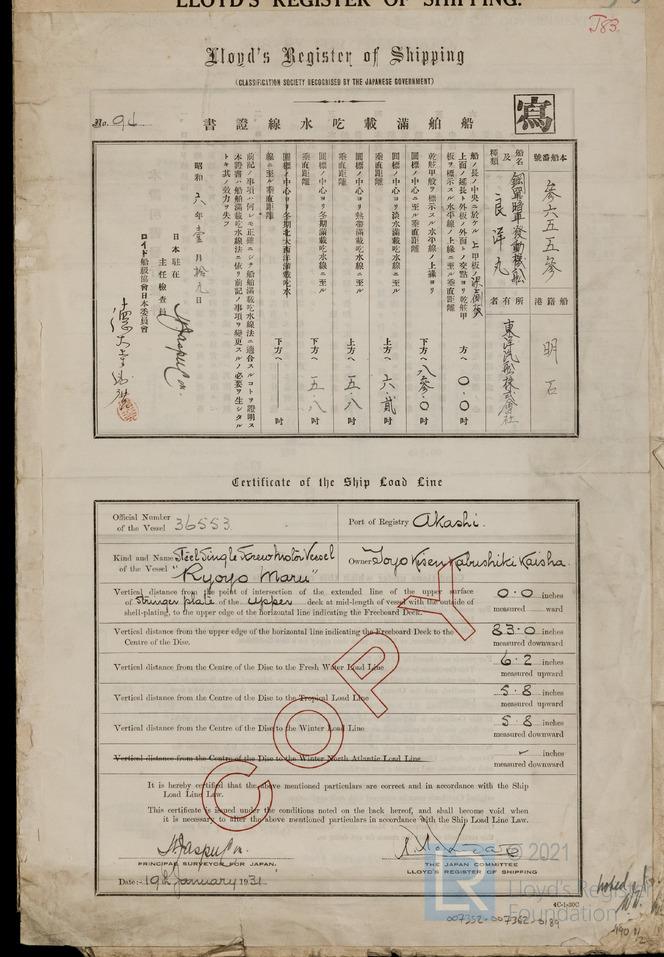 LLOYD'S REGISTER OF SHIPPING.
J83.
Lloyd's Register of Shipping
(CLASSIFICATION SOCIETY RECOGNISED BY THE JAPANESE GOVERNMENT)
No. 94
寫
書證線水吃載滿舶船
本船番號
參六五五參
船籍港
明石
船名及種類
良洋丸
所有者
東洋汽船株式會社
方ヘ 〇.〇 吋
乾舷甲板ヲ標示スル水平線ノ上緣ヨリ圓標ノ中心ニ至ル垂直距離
下方ヘ 八參.〇 吋
圓標ノ中心ヨリ淡水滿載吃水線ニ至ル垂直距離
上方ヘ 六.貳 吋
圓標ノ中心ヨリ熱帶滿載吃水線ニ至ル垂直距離
上方ヘ 五.八 吋
圓標ノ中心ヨリ冬期滿載吃水線ニ至ル垂直距離
下方ヘ 五.八 吋
圓標ノ中心ヨリ冬期北大西洋滿載吃水線ニ至ル垂直距離
下方ヘ 吋
前記ノ事項ハ何レモ正確ニシテ船舶滿載吃水線法ニ適合スルコトヲ證明ス
本證書ハ船舶滿載吃水線法ニ依リ前記ノ事項ヲ變更スルノ必要ヲ生シタルトキ其ノ效力ヲ失フ
昭和六年壹月拾九日
日本駐在
主任檢查員
ロイド船級協會日本委員會
Certificate of the Ship Load Line
Official Number of the Vessel 36553.
Port of Registry Akashi.
Kind and Name of the Vessel Steel Single Screw Motor Vessel "Ryoyo Maru"
Owner Toyo Kisen Kabushiki Kaisha.
Vertical distance from the point of intersection of the extended line of the upper surface
of stringer plate of the upper deck at mid-length of vessel with the outside of
shell-plating, to the upper edge of the horizontal line indicating the Freeboard Deck.
0.0 inches
measured ward
Vertical distance from the upper edge of the horizontal line indicating the Freeboard Deck to the
Centre of the Disc.
83.0 inches
measured downward
Vertical distance from the Centre of the Disc to the Fresh Water Load Line
6.2 inches
measured upward
Vertical distance from the Centre of the Disc to the Tropical Load Line
5.8 inches
measured upward
Vertical distance from the Centre of the Disc to the Winter Load Line
5.8 inches
measured downward
Vertical distance from the Centre of the Disc to the Winter North Atlantic Load Line
inches
measured downward
COPY
It is hereby certified that the above mentioned particulars are correct and in accordance with the Ship
Load Line Law.
This certificate is issued under the conditions noted on the back hereof, and shall become void when
it is necessary to alter the above mentioned particulars in accordance with the Ship Load Line Law.
PRINCIPAL SURVEYOR FOR JAPAN.
THE JAPAN COMMITTEE
LLOYD'S REGISTER OF SHIPPING
Date:- 19th January 1931
4C-1-30C
LR © 2021
Lloyd's Register
Foundation
007352-007362-0189